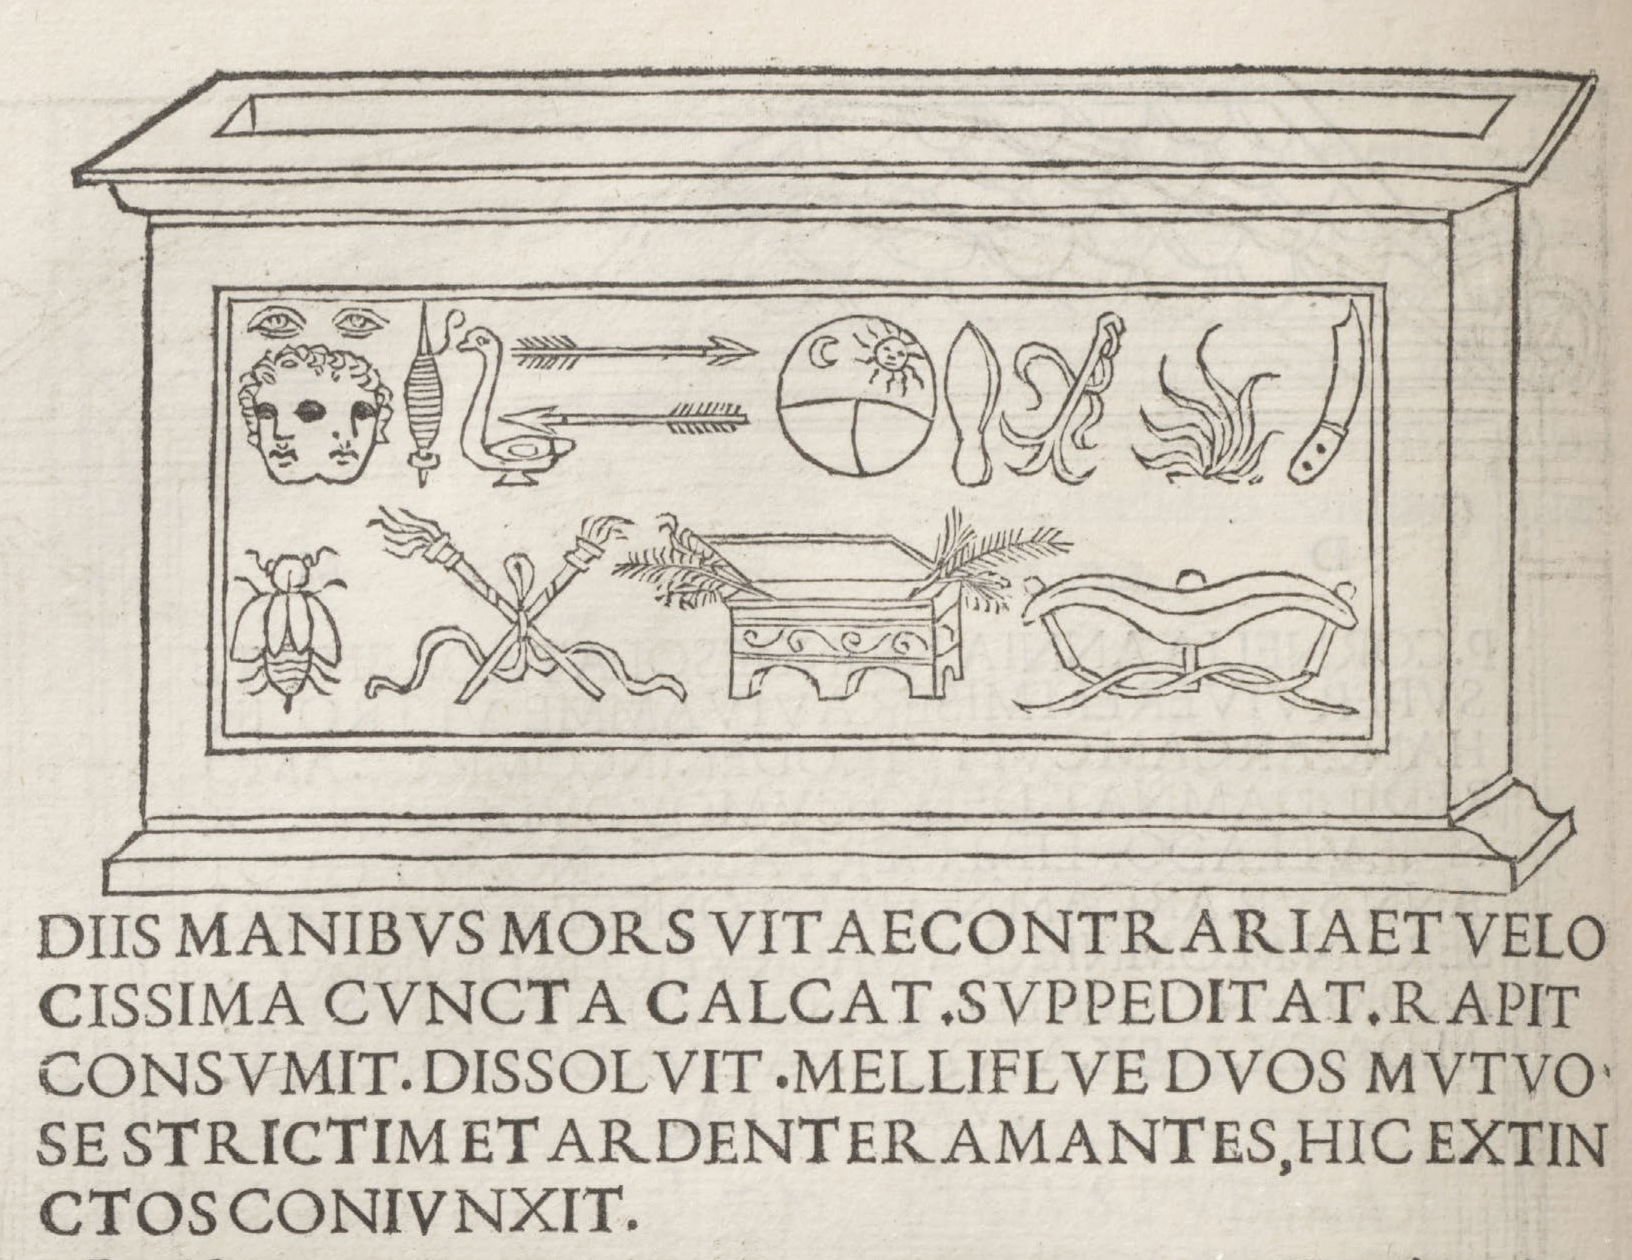 DIIS MANIBVS MORS VITAE CONTRARIA ET VELO
CISSIMA CVNCTA CALCAT. SVPPEDITAT. RAPIT
CONSVMIT. DISSOLVIT. MELLIFLVE DVOS MVTVO.
SE STRICTIM ET ARDENTER AMANTES, HIC EXTIN
CTOS CONIVNXIT.